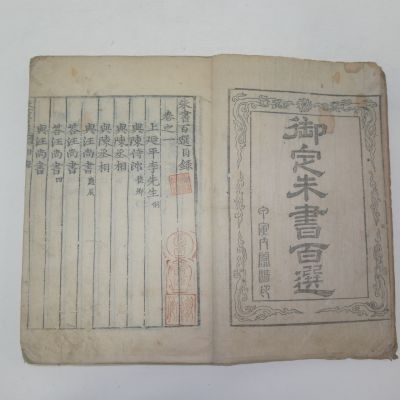 御定朱書百選
朱書百選目錄
卷之一
上延平李先生 侗
與陳侍郎 俊卿
與陳丞相
與陳丞相
與汪尚書 應辰
答汪尚書
答汪尚書 四
與汪尚書